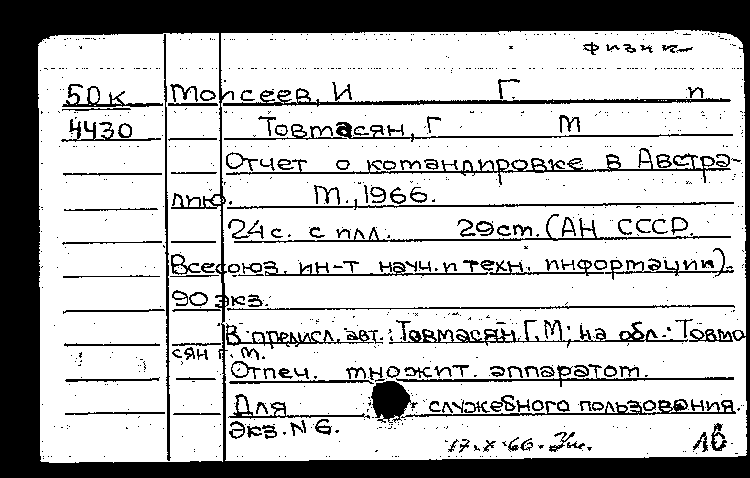 физик
50к Моисеев, И Г. п
4430 Товмасян, Г М
Отчет о командировке в Австра-
лию. М., 1966.
24 с. с илл. 29 см. (АН СССР.
Всесоюз. ин-т науч. и техн. информации).
90 экз.
В предисл. авт.: Товмасян Г. М; на обл.: Товма
сян Г. М.
Отпеч. множит. аппаратом.
Для служебного пользования.
Экз. N 6.
17-X-66. 1б